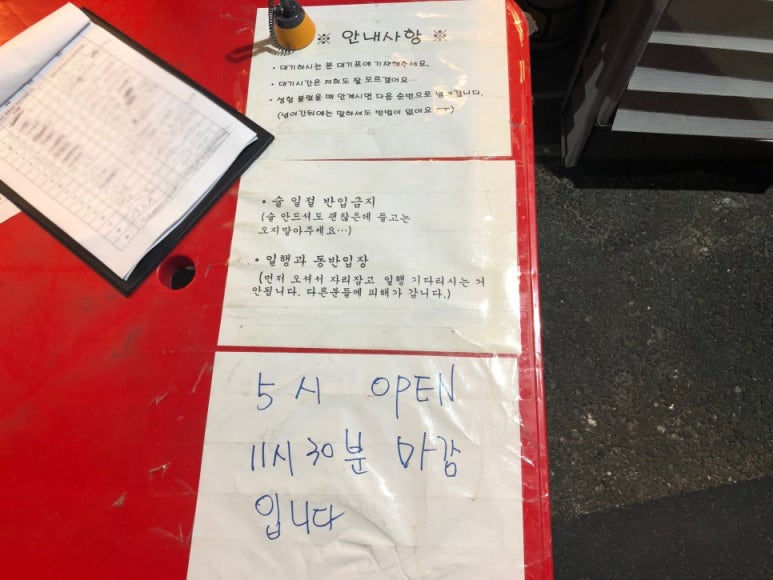 ※ 안내사항 ※
• 대기하시는 분 대기표에 기재해주세요.
• 대기시간은 저희도 잘 모르겠어요...
• 성함 불렀을 때 안계시면 다음 순번으로 넘겨집니다.
(넘어간뒤에는 말하셔도 방법이 없어요 ㅜㅜ)
• 술 일절 반입금지
(술 안드셔도 괜찮은데 들고는
오지말아주세요...)
• 일행과 동반입장
(먼저 오셔서 자리잡고 일행 기다리시는 거
안됩니다. 다른분들께 피해가 갑니다.)
5시 OPEN
11시 30분 마감
입니다